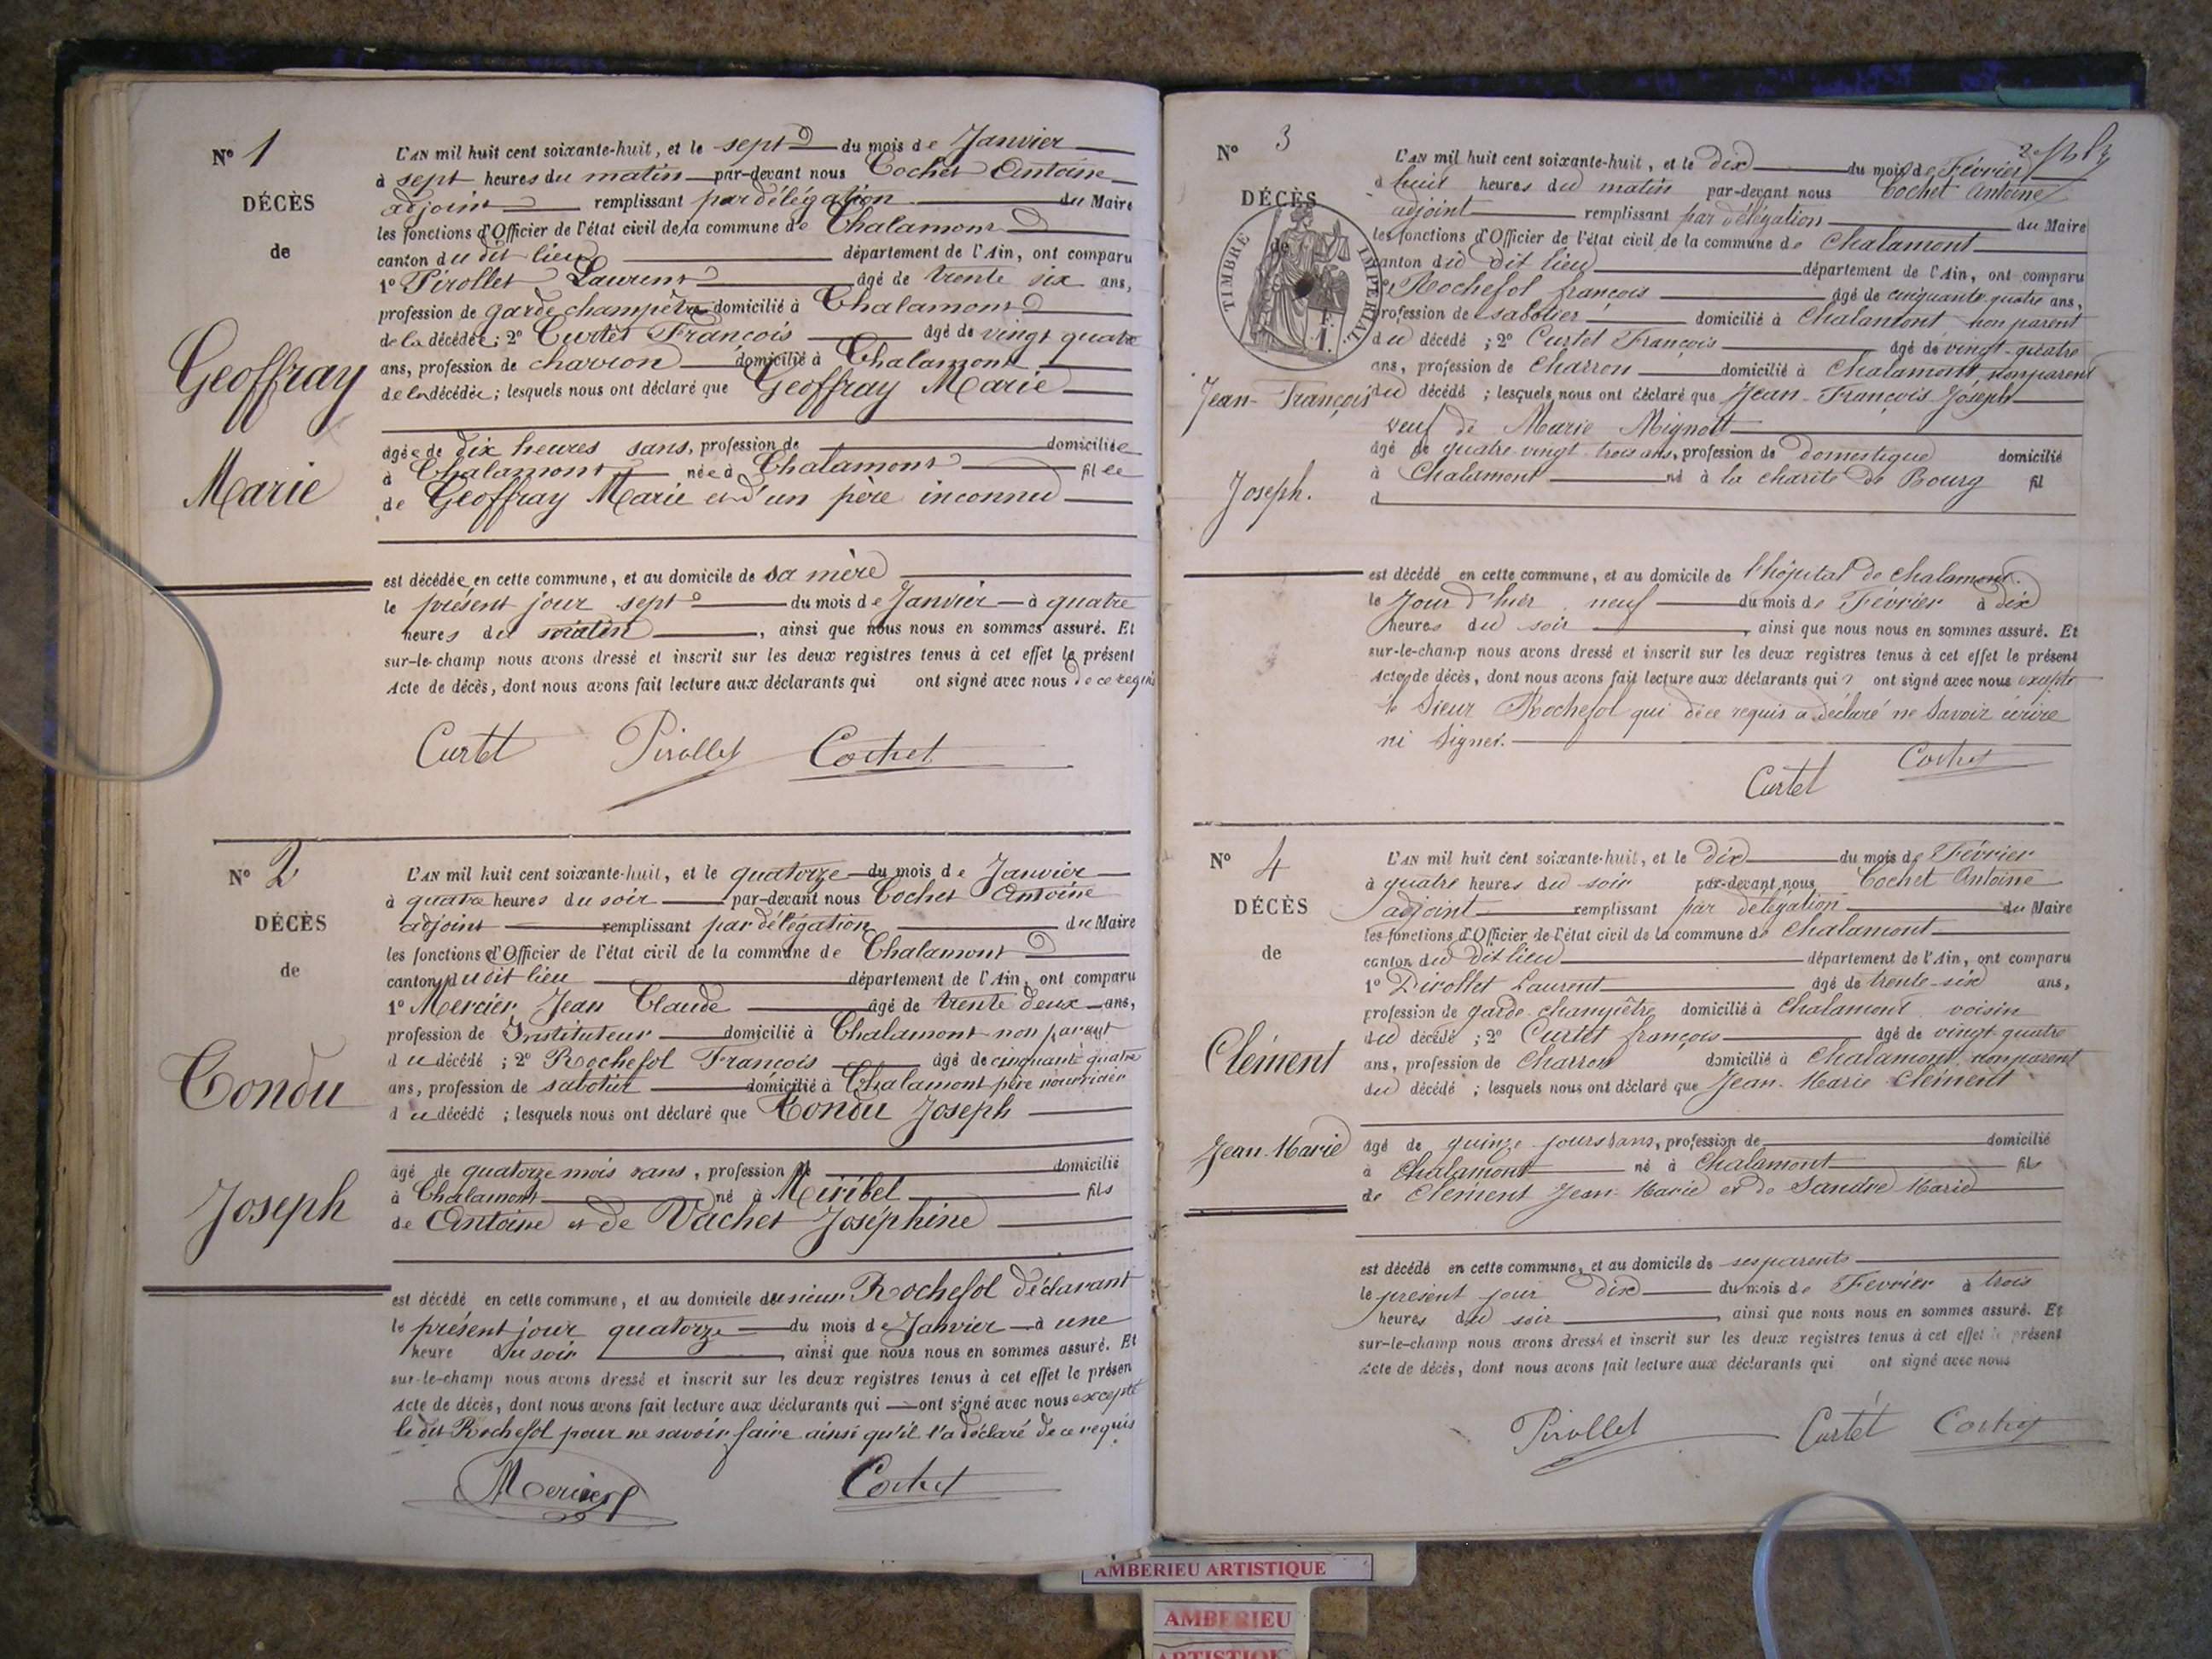 Nº 1
DÉCÈS
de
Geoffray
Marie
L'AN mil huit cent soixante-huit, et le sept du mois de Janvier
à sept heures du matin par-devant nous Cochet Antoine
adjoint remplissant par délégation du Maire
les fonctions d'Officier de l'état civil de la commune de Chalamont
canton du dit lieu département de l'Ain, ont comparu
1º Pirollet Laurent âgé de trente six ans,
profession de garde champêtre domicilié à Chalamont
de la décédée ; 2º Curtet François âgé de vingt quatre
ans, profession de charron domicilié à Chalamont
de la décédée ; lesquels nous ont déclaré que Geoffray Marie
âgée de dix heures sans, profession de domiciliée
à Chalamont née à Chalamont fille
de Geoffray Marie et d'un père inconnu
est décédée en cette commune, et au domicile de sa mère
le présent jour sept du mois de Janvier à quatre
heures du matin, ainsi que nous nous en sommes assuré. Et
sur-le-champ nous avons dressé et inscrit sur les deux registres tenus à cet effet le présent
Acte de décès, dont nous avons fait lecture aux déclarants qui ont signé avec nous de ce requis
Curtet Pirollet Cochet
Nº 2
DÉCÈS
de
Condu
Joseph
L'AN mil huit cent soixante-huit, et le quatorze du mois de Janvier
à quatre heures du soir par-devant nous Cochet Antoine
adjoint remplissant par délégation du Maire
les fonctions d'Officier de l'état civil de la commune de Chalamont
canton du dit lieu département de l'Ain, ont comparu
1º Mercier Jean Claude âgé de trente deux ans,
profession de Instituteur domicilié à Chalamont non parent
du décédé ; 2º Rochefol François âgé de cinquante quatre
ans, profession de sabotier domicilié à Chalamont père nourricier
du décédé ; lesquels nous ont déclaré que Condu Joseph
âgé de quatorze mois sans, profession de domicilié
à Chalamont né à Miribel fils
de Antoine et de Vachet Joséphine
est décédé en cette commune, et au domicile du sieur Rochefol déclarant
le présent jour quatorze du mois de Janvier à une
heure du soir, ainsi que nous nous en sommes assuré. Et
sur-le-champ nous avons dressé et inscrit sur les deux registres tenus à cet effet le présen
Acte de décès, dont nous avons fait lecture aux déclarants qui ont signé avec nous excepté
le dit Rochefol pour ne savoir faire ainsi qu'il l'a déclaré de ce requis
Mercier Cochet
Nº 3
DÉCÈS
de
TIMBRE IMPÉRIAL
Jean-François
Joseph.
L'AN mil huit cent soixante-huit, et le dix du mois de Février
à huit heures du matin par-devant nous Cochet Antoine
adjoint remplissant par délégation du Maire
les fonctions d'Officier de l'état civil de la commune de Chalamont
canton du dit lieu département de l'Ain, ont comparu
Rochefol françois âgé de cinquante-quatre ans,
profession de sabotier domicilié à Chalamont non parent
du décédé ; 2º Curtet François âgé de vingt-quatre
ans, profession de Charron domicilié à Chalamont, non parent
du décédé ; lesquels nous ont déclaré que Jean-François Joseph
veuf de Marie Mignott
âgé de quatre-vingt-trois ans, profession de Domestique domicilié
à Chalamont né à la charité de Bourg fil
d
est décédé en cette commune, et au domicile de l'hôpital de Chalamont.
le Jour d'hier neuf du mois de Février à dix
heures du soir, ainsi que nous nous en sommes assuré. Et
sur-le-champ nous avons dressé et inscrit sur les deux registres tenus à cet effet le présent
Acte de décès, dont nous avons fait lecture aux déclarants qui ont signé avec nous excepté
le Sieur Rochefol qui de ce requis a déclaré ne savoir écrire
ni signer.
Curtet Cochet
Nº 4
DÉCÈS
de
Clément
Jean-Marie
L'AN mil huit cent soixante-huit, et le dix du mois de Février
à quatre heures du soir par-devant nous Cochet Antoine
adjoint remplissant par délégation du Maire
les fonctions d'Officier de l'état civil de la commune de Chalamont
canton du dit lieu département de l'Ain, ont comparu
1º Pirollet Laurent âgé de trente-six ans,
profession de garde-champêtre domicilié à Chalamont voisin
du décédé ; 2º Curtet françois âgé de vingt-quatre
ans, profession de Charron domicilié à Chalamont non parent
du décédé ; lesquels nous ont déclaré que Jean-Marie Clément
âgé de quinze jours sans, profession de domicilié
à Chalamont né à Chalamont fils
de Clément Jean-Marie et de Sandre Marie
est décédé en cette commune, et au domicile de ses parents
le présent jour dix du mois de Février à trois
heures du soir, ainsi que nous nous en sommes assuré. Et
sur-le-champ nous avons dressé et inscrit sur les deux registres tenus à cet effet le présent
Acte de décès, dont nous avons fait lecture aux déclarants qui ont signé avec nous
Pirollet Curtet Cochet
AMBERIEU ARTISTIQUE
AMBERIEU
ARTISTIQUE